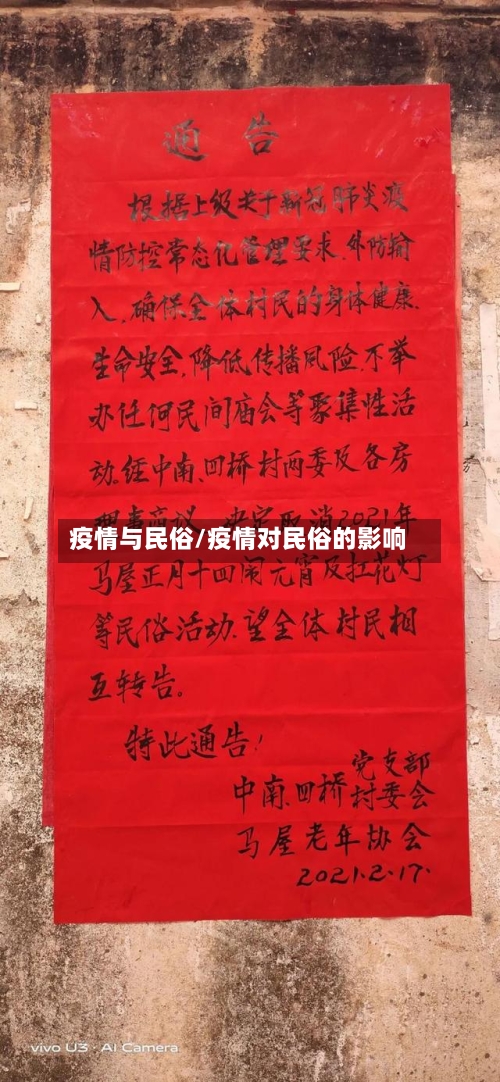 通告
根据上级关于新冠肺炎疫
情防控常态化管理要求.外防输
入.确保全体村民的身体健康.
生命安全.降低传播风险.不举
办任何民间庙会等聚集性活
动。经中南、四桥村两委及各房
理事商议.决定取消2021年
疫情与民俗/疫情对民俗的影响
马屋正月十四闹元宵及扛花灯
等民俗活动.望全体村民相
互转告。
特此通告!
党支部
中南、四桥村委会
马屋老年协会
2021.2.17.
vivo U3 · AI Camera